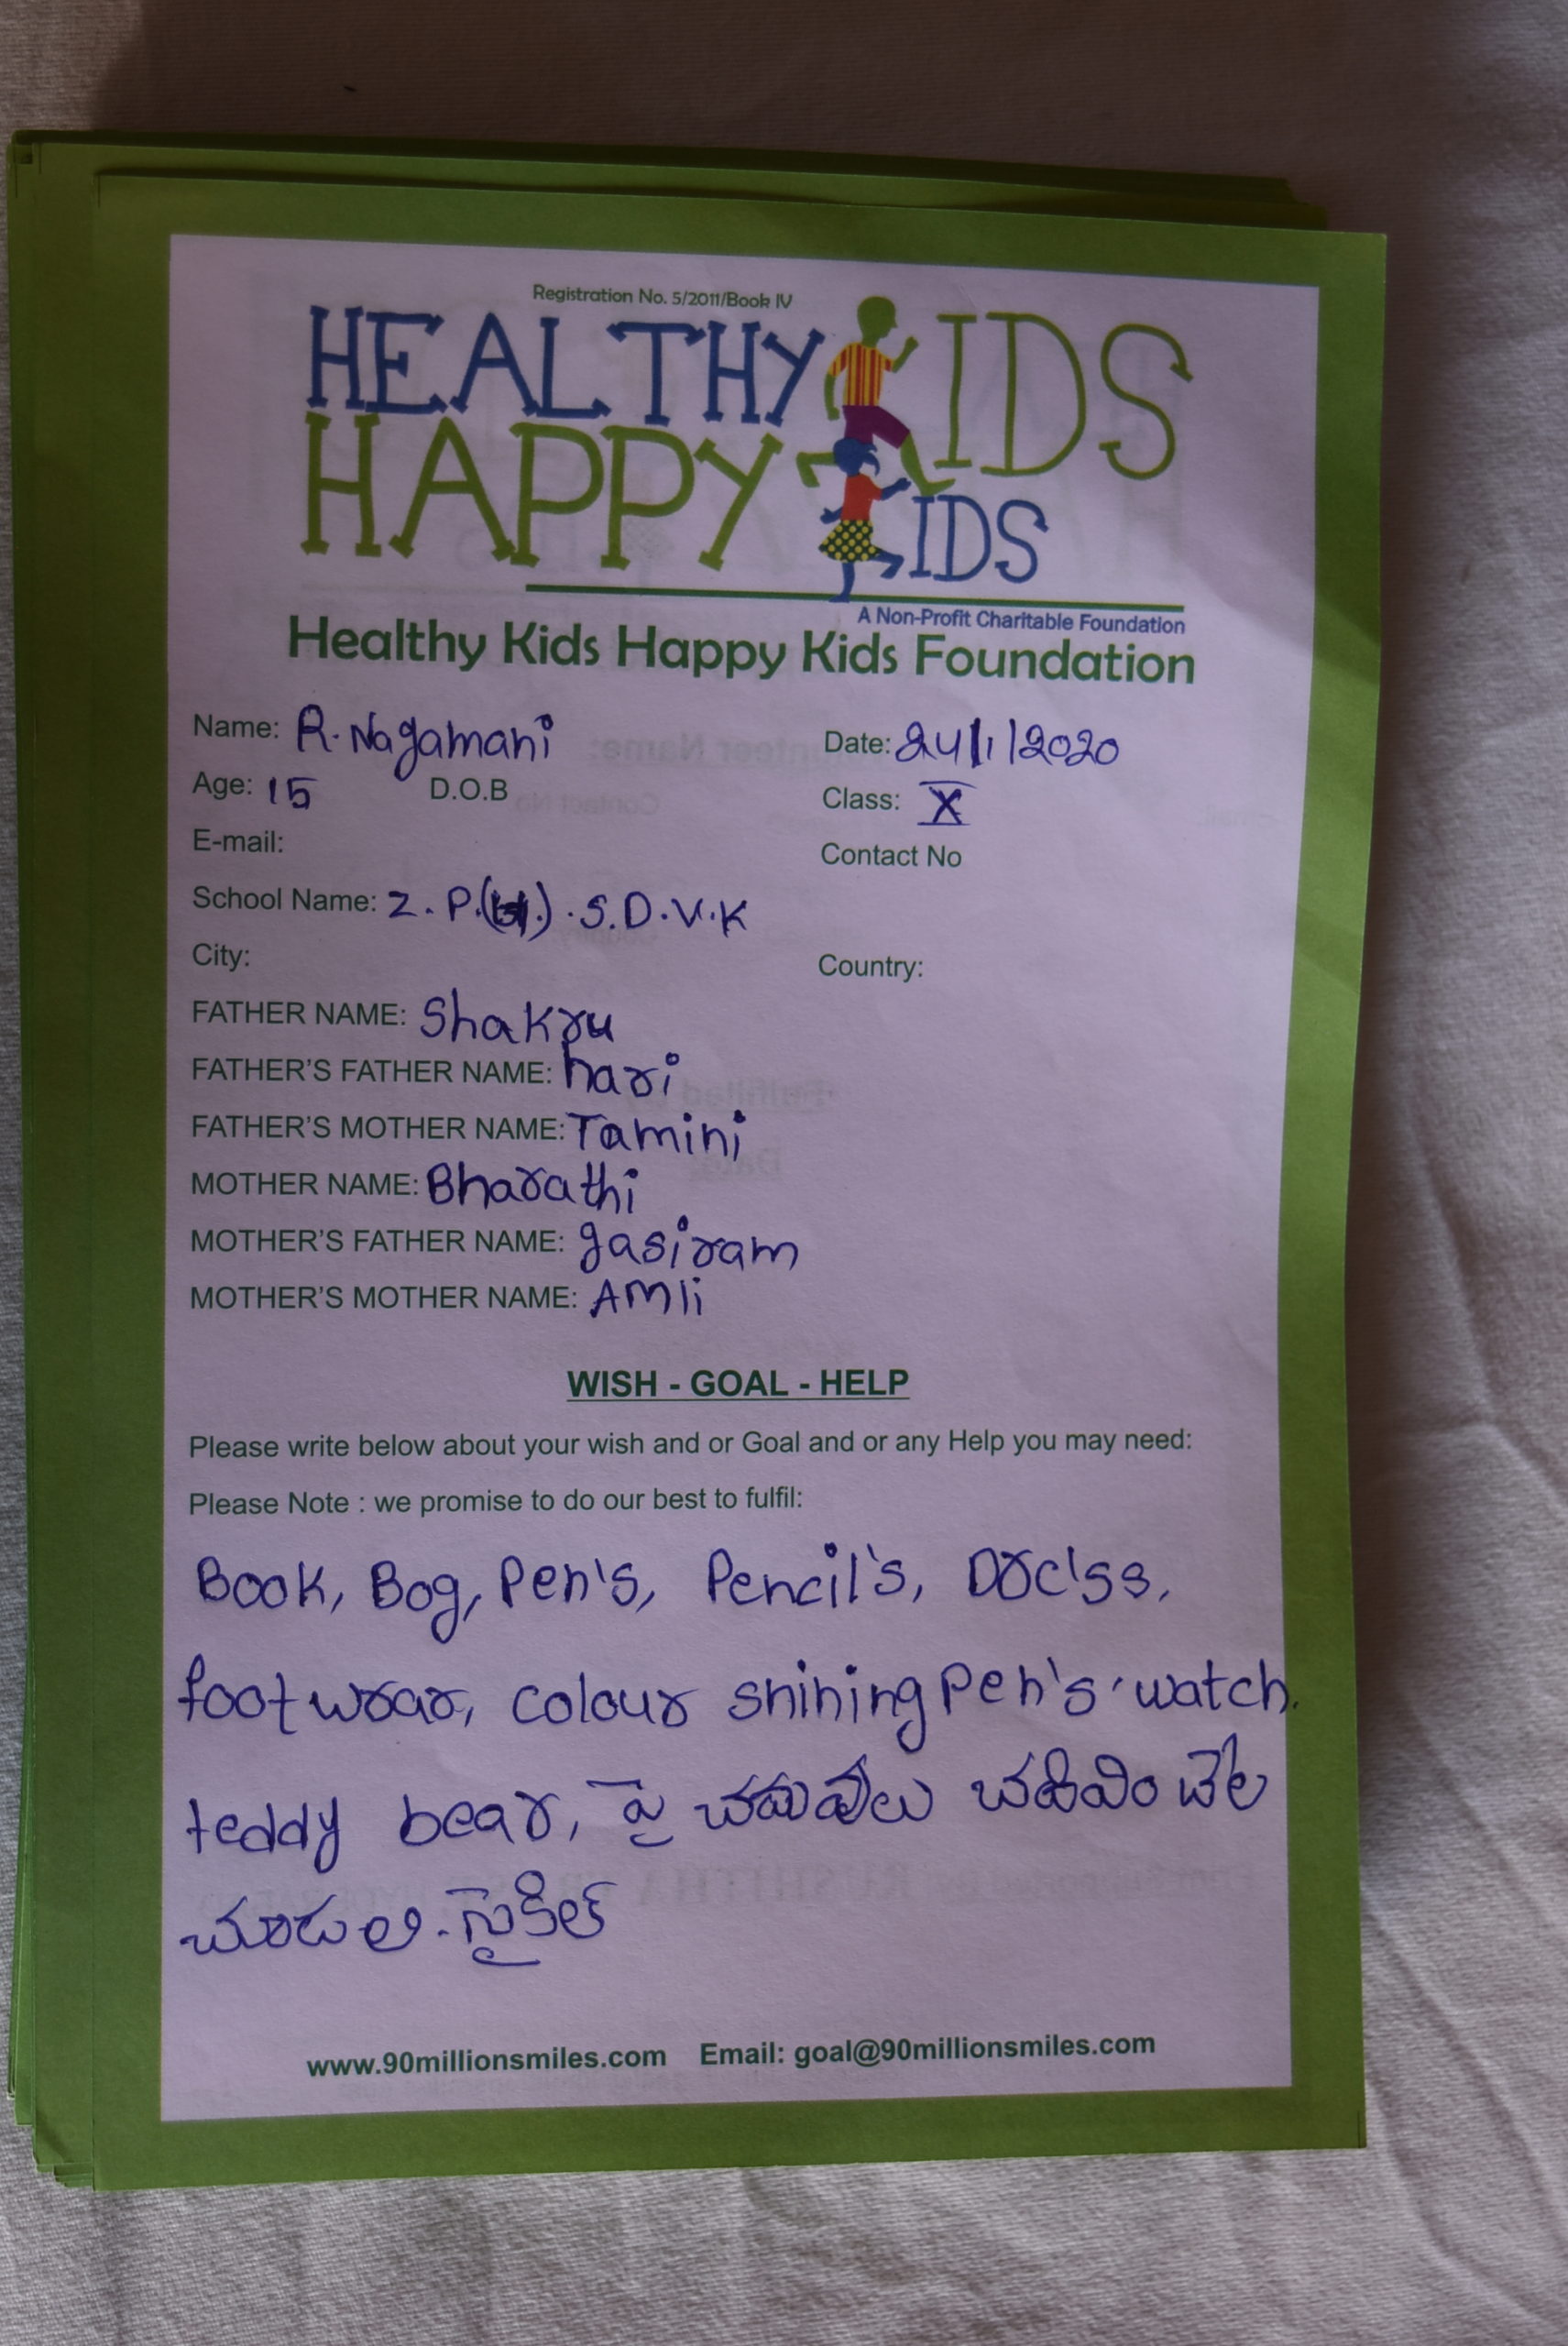 Registration No. 5/2011/Book IV
HEALTHY KIDS
HAPPY KIDS
A Non-Profit Charitable Foundation
Healthy Kids Happy Kids Foundation
Name: R. Nagamani Date: 24/1/2020
Age: 15 D.O.B Class: X
E-mail: Contact No
School Name: Z. P. (H.) . S. D. V. K
City: Country:
FATHER NAME: Shakru
FATHER'S FATHER NAME: hari
FATHER'S MOTHER NAME: Tamini
MOTHER NAME: Bharathi
MOTHER'S FATHER NAME: gasiram
MOTHER'S MOTHER NAME: AMli
WISH - GOAL - HELP
Please write below about your wish and or Goal and or any Help you may need:
Please Note : we promise to do our best to fulfil:
Book, Bog, Pen's, Pencil's, Drc'ss,
foot wrar, colour shining pen's, watch.
teddy bear, పై చదువులు చదివించేల
చూడలి. సైకిల్
www.90millionsmiles.com Email: goal@90millionsmiles.com